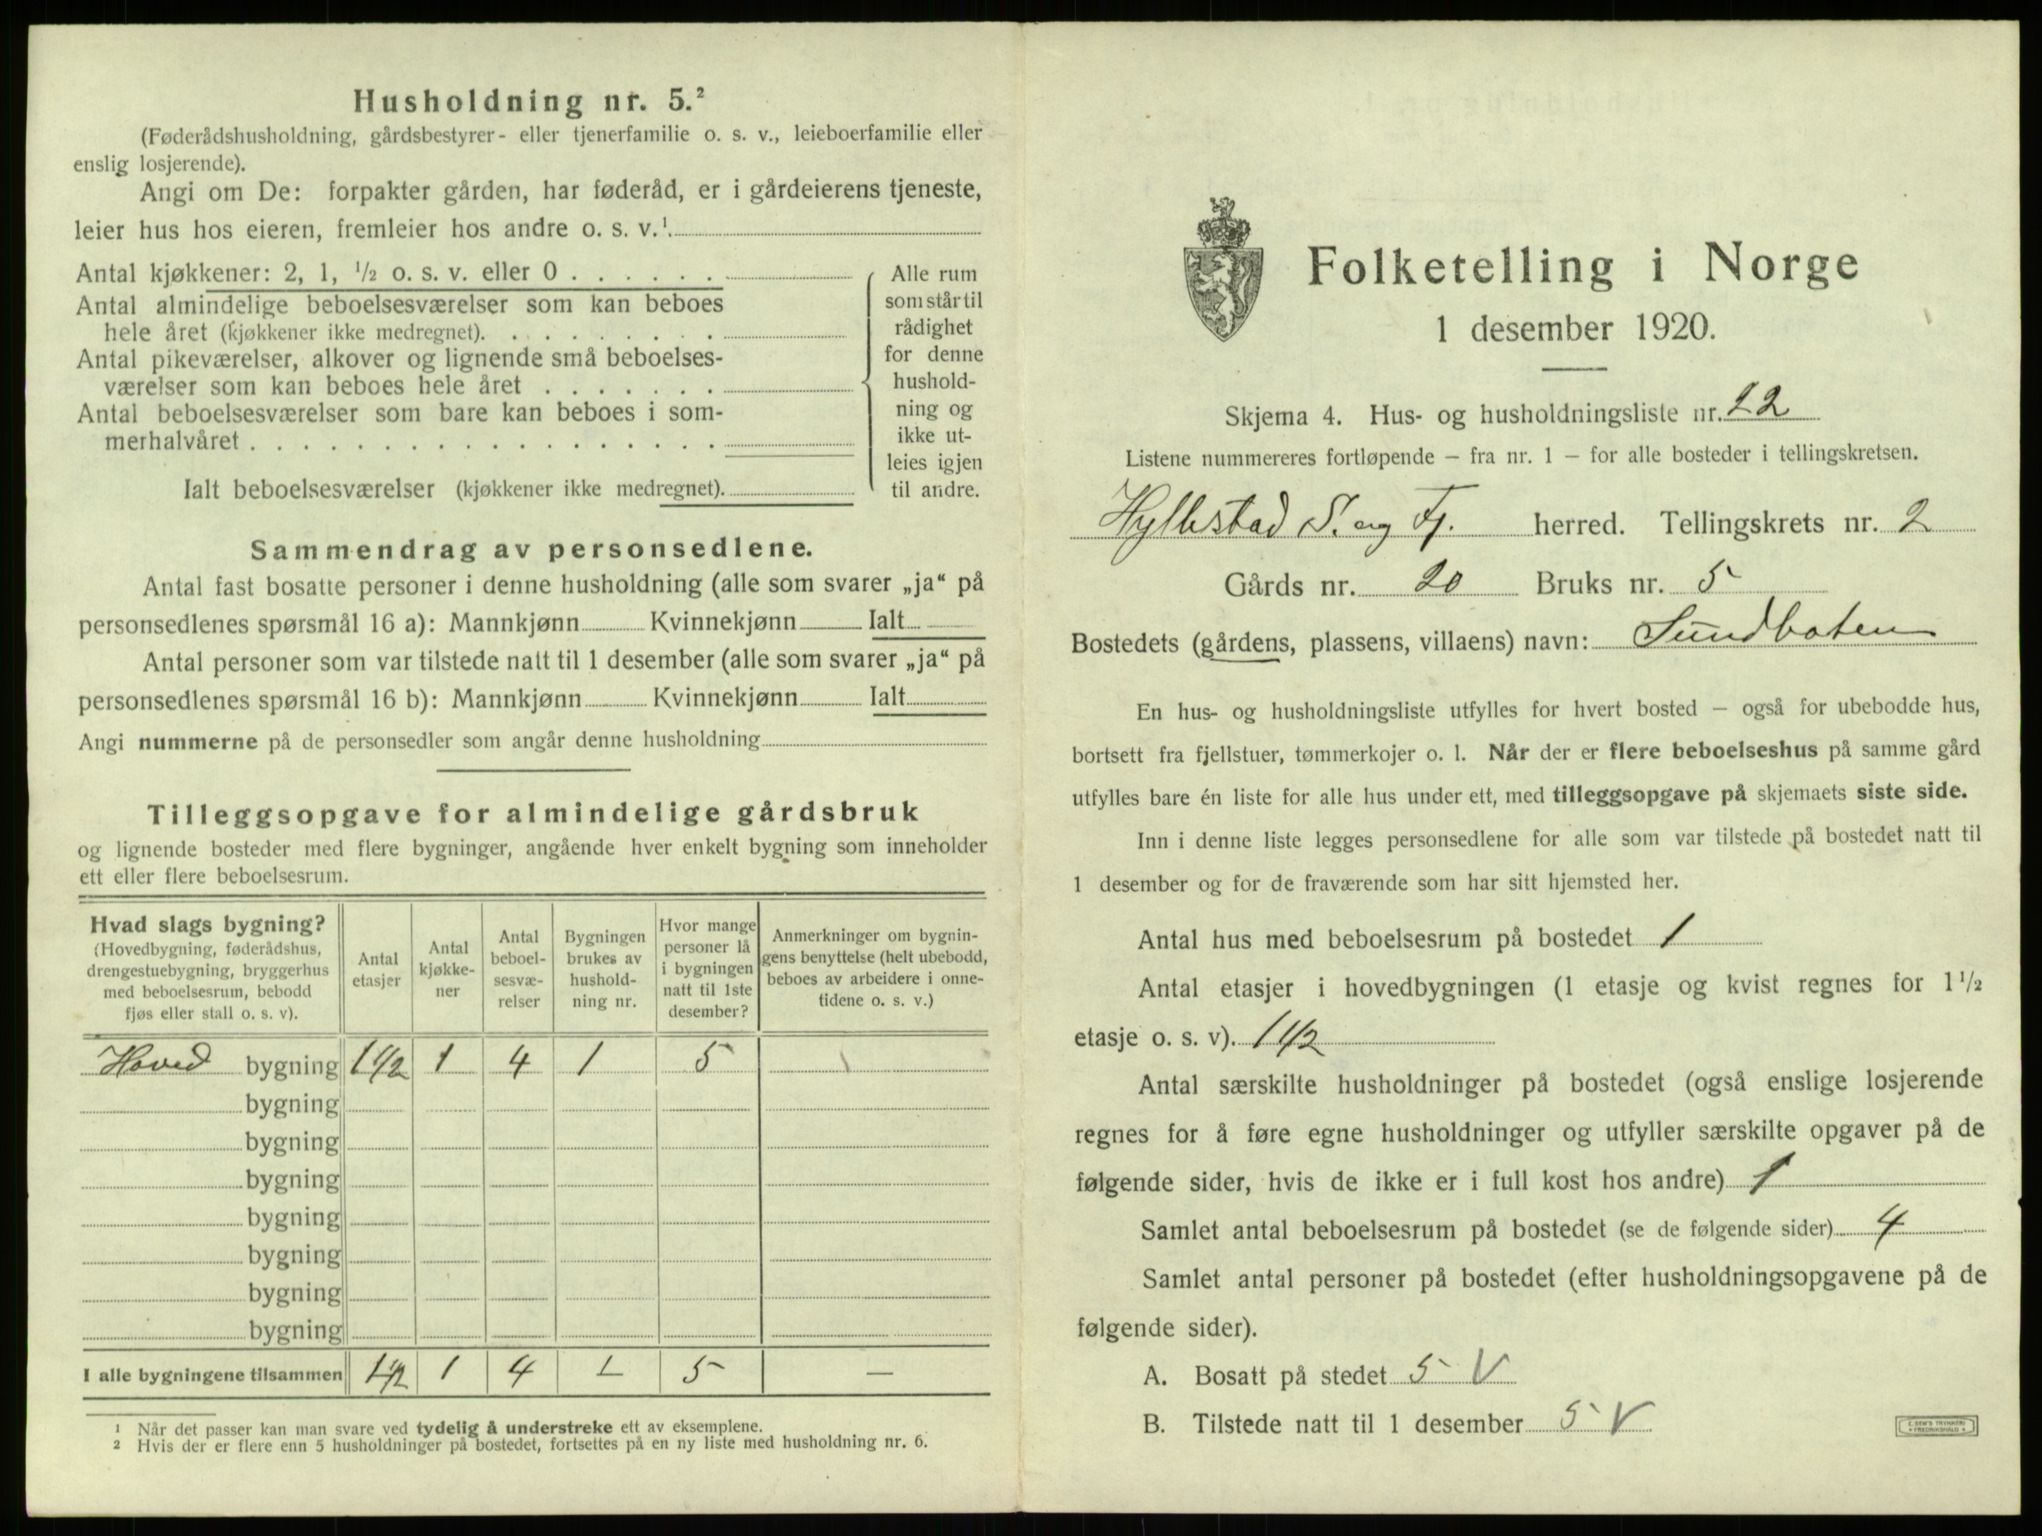 Husholdning nr. 5.²
(Føderådshusholdning, gårdsbestyrer- eller tjenerfamilie o. s. v., leieboerfamilie eller
enslig losjerende).
Angi om De: forpakter gården, har føderåd, er i gårdeierens tjeneste,
leier hus hos eieren, fremleier hos andre o. s. v.¹
Antal kjøkkener: 2, 1, ½ o. s. v. eller 0 . . . . . .
Antal almindelige beboelsesværelser som kan beboes
hele året (kjøkkener ikke medregnet). . . . . . . . .
Antal pikeværelser, alkover og lignende små beboelses-
værelser som kan beboes hele året . . . . . . .
Antal beboelsesværelser som bare kan beboes i som-
merhalvåret . . . . . . . . . . . . . . . . . .
Ialt beboelsesværelser (kjøkkener ikke medregnet).
Alle rum
som står til
rådighet
for denne
hushold-
ning og
ikke ut-
leies igjen
til andre.
Sammendrag av personsedlene.
Antal fast bosatte personer i denne husholdning (alle som svarer „ja“ på
personsedlenes spørsmål 16 a): Mannkjønn Kvinnekjønn Ialt
Antal personer som var tilstede natt til 1 desember (alle som svarer „ja“ på
personsedlenes spørsmål 16 b): Mannkjønn Kvinnekjønn Ialt
Angi nummerne på de personsedler som angår denne husholdning
Tilleggsopgave for almindelige gårdsbruk
og lignende bosteder med flere bygninger, angående hver enkelt bygning som inneholder
ett eller flere beboelsesrum.
Hvad slags bygning?
(Hovedbygning, føderådshus,
drengestuebygning, bryggerhus
med beboelsesrum, bebodd
fjøs eller stall o. s. v).
Antal
etasjer
Antal
kjøkke-
ner
Antal
beboel-
sesvæ-
relser
Bygningen
brukes av
hushold-
ning nr.
Hvor mange
personer lå
i bygningen
natt til 1ste
desember?
Anmerkninger om bygnin-
gens benyttelse (helt ubebodd,
beboes av arbeidere i onne-
tidene o. s. v.)
Hoved bygning 1 1/2 1 4 1 5
bygning
bygning
bygning
bygning
bygning
bygning
bygning
I alle bygningene tilsammen 1 1/2 1 4 1 5 —
¹ Når det passer kan man svare ved tydelig å understreke ett av eksemplene.
² Hvis der er flere enn 5 husholdninger på bostedet, fortsettes på en ny liste med husholdning nr. 6.
Folketelling i Norge
1 desember 1920.
Skjema 4. Hus- og husholdningsliste nr. 22
Listene nummereres fortløpende – fra nr. 1 – for alle bosteder i tellingskretsen.
Hyllestad S. og Fj. herred. Tellingskrets nr. 2
Gårds nr. 20 Bruks nr. 5
Bostedets (gårdens, plassens, villaens) navn: Sundboten
En hus- og husholdningsliste utfylles for hvert bosted – også for ubebodde hus,
bortsett fra fjellstuer, tømmerkojer o. l. Når der er flere beboelseshus på samme gård
utfylles bare én liste for alle hus under ett, med tilleggsopgave på skjemaets siste side.
Inn i denne liste legges personsedlene for alle som var tilstede på bostedet natt til
1 desember og for de fraværende som har sitt hjemsted her.
Antal hus med beboelsesrum på bostedet 1
Antal etasjer i hovedbygningen (1 etasje og kvist regnes for 1½
etasje o. s. v). 1 1/2
Antal særskilte husholdninger på bostedet (også enslige losjerende
regnes for å føre egne husholdninger og utfyller særskilte opgaver på de
følgende sider, hvis de ikke er i full kost hos andre) 1
Samlet antal beboelsesrum på bostedet (se de følgende sider) 4
Samlet antal personer på bostedet (efter husholdningsopgavene på de
følgende sider).
A. Bosatt på stedet 5 V
B. Tilstede natt til 1 desember 5 V
E. SEM'S TRYKKERI
• FREDRIKSHALD •